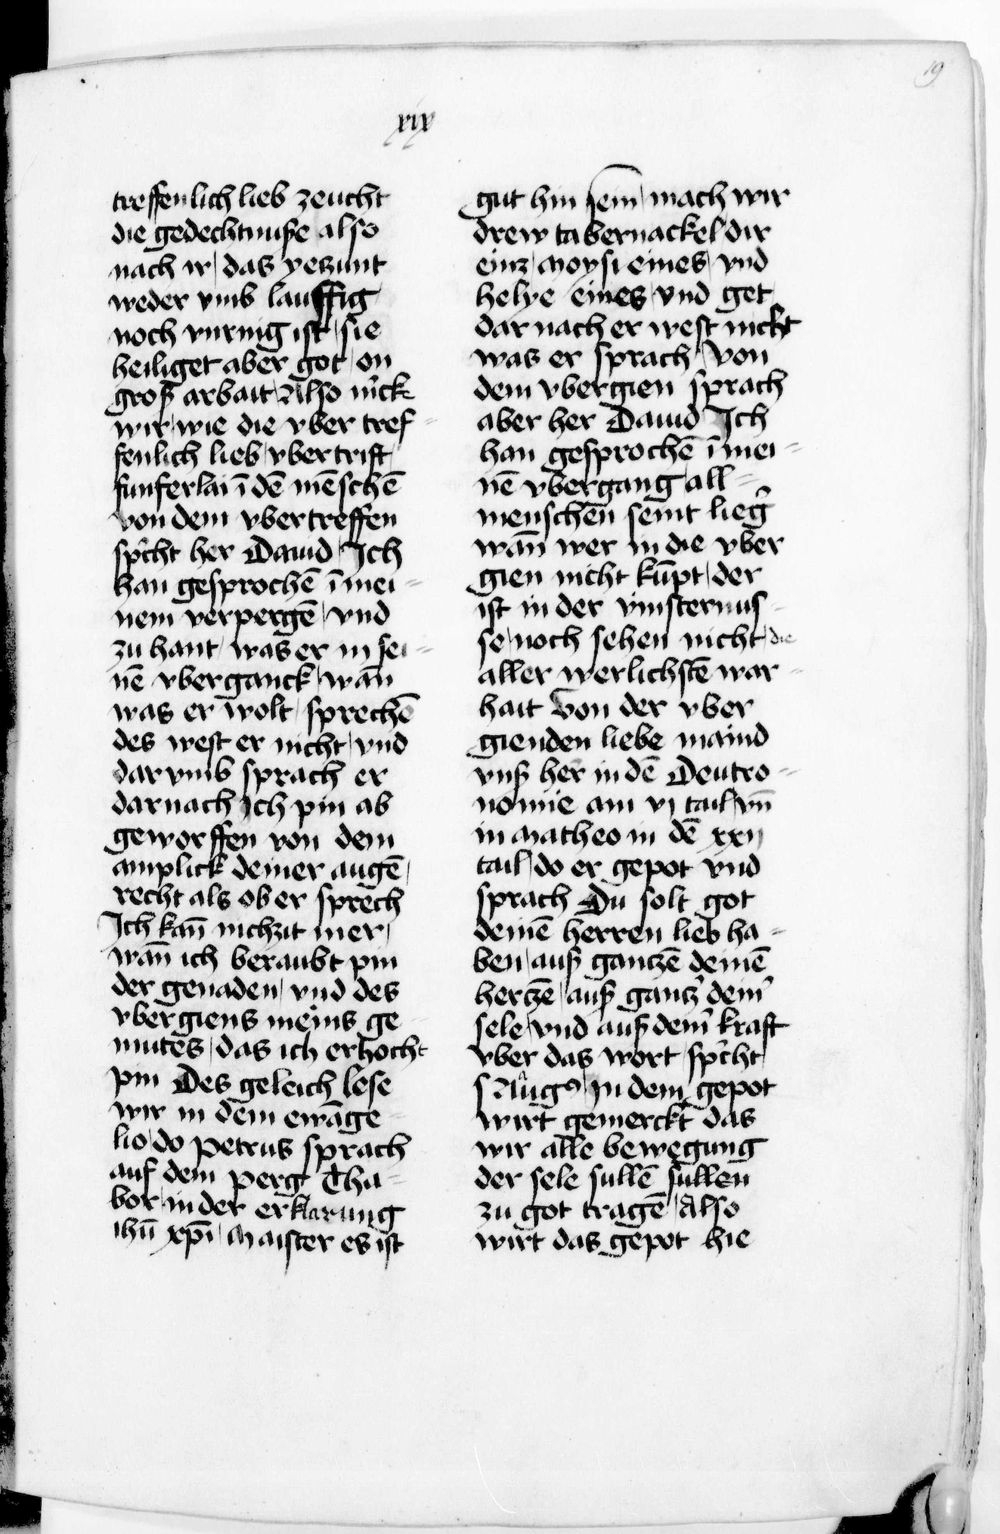 19
xix
treffenlich lieb zeucht
die gedechtnuße also
nach ir / das yeczunt
weder vmb lauffig
noch vnruig ist / sie
heiliget aber got / on
groß arbait / Also m̉ck
wir / wie die vber tref=
fenlich lieb / vbertrift
funferlai ī dē mēschē
von dem vbertreffen
sp̉cht her Dauid / Ich
han gesprochē ī mei=
nem verpergē / vnd
zu hant / was er in sei=
nē vberganck / wān
was er wolt / sprechē
des west er nicht / vnd
darvmb sprach er
darnach Ich pin ab
geworffen von dem
amplick deiner augē /
recht als ob er sprech
Ich kan̄ nichzit mer /
wan̄ ich beraubt pin
der genaden / vnd des
vbergiens meins ge=
mutes / das ich erhocht
pin Des geleich lese
wir in dem ewāge=
lio / do petrus sprach
auf dem perg Tha=
bor / in der erklarung
ihū xp̄i / Maister es ist
gut hin sein / mach wir
drew tabernackel / dir
einz / Moysi eines / vnd
helye eines / vnd get
dar nach er west nicht
was er sprach / Von
dem vbergien sprach
aber her Dauid Ich
han gesprochē ī mei=
nē vbergang / all=
menschen seint lieg̉
wan̄ wer in die vber
gien nicht kūpt / der
ist in der vinsternus=
se / noch sehen nicht / die
aller werlichstē war=
hait Von der vber
gienden liebe maind
vnß her in dē Deutro=
nomie am vj tail / vn̄
in Matheo in dē xxij
tail / do er gepot vnd
sprach Du solt got
deinē herren lieb ha=
ben / auß ganczē deinē
herczē / auß gancz̉ dein̉
sele / vnd auß dein̉ kraft
vber das wort / sp̉cht
S Augꝰ / In dem gepot
wirt gemerckt das
wir alle bewegung
der sele sullē sullen
zu got tragē / Also
wirt das gepot hie